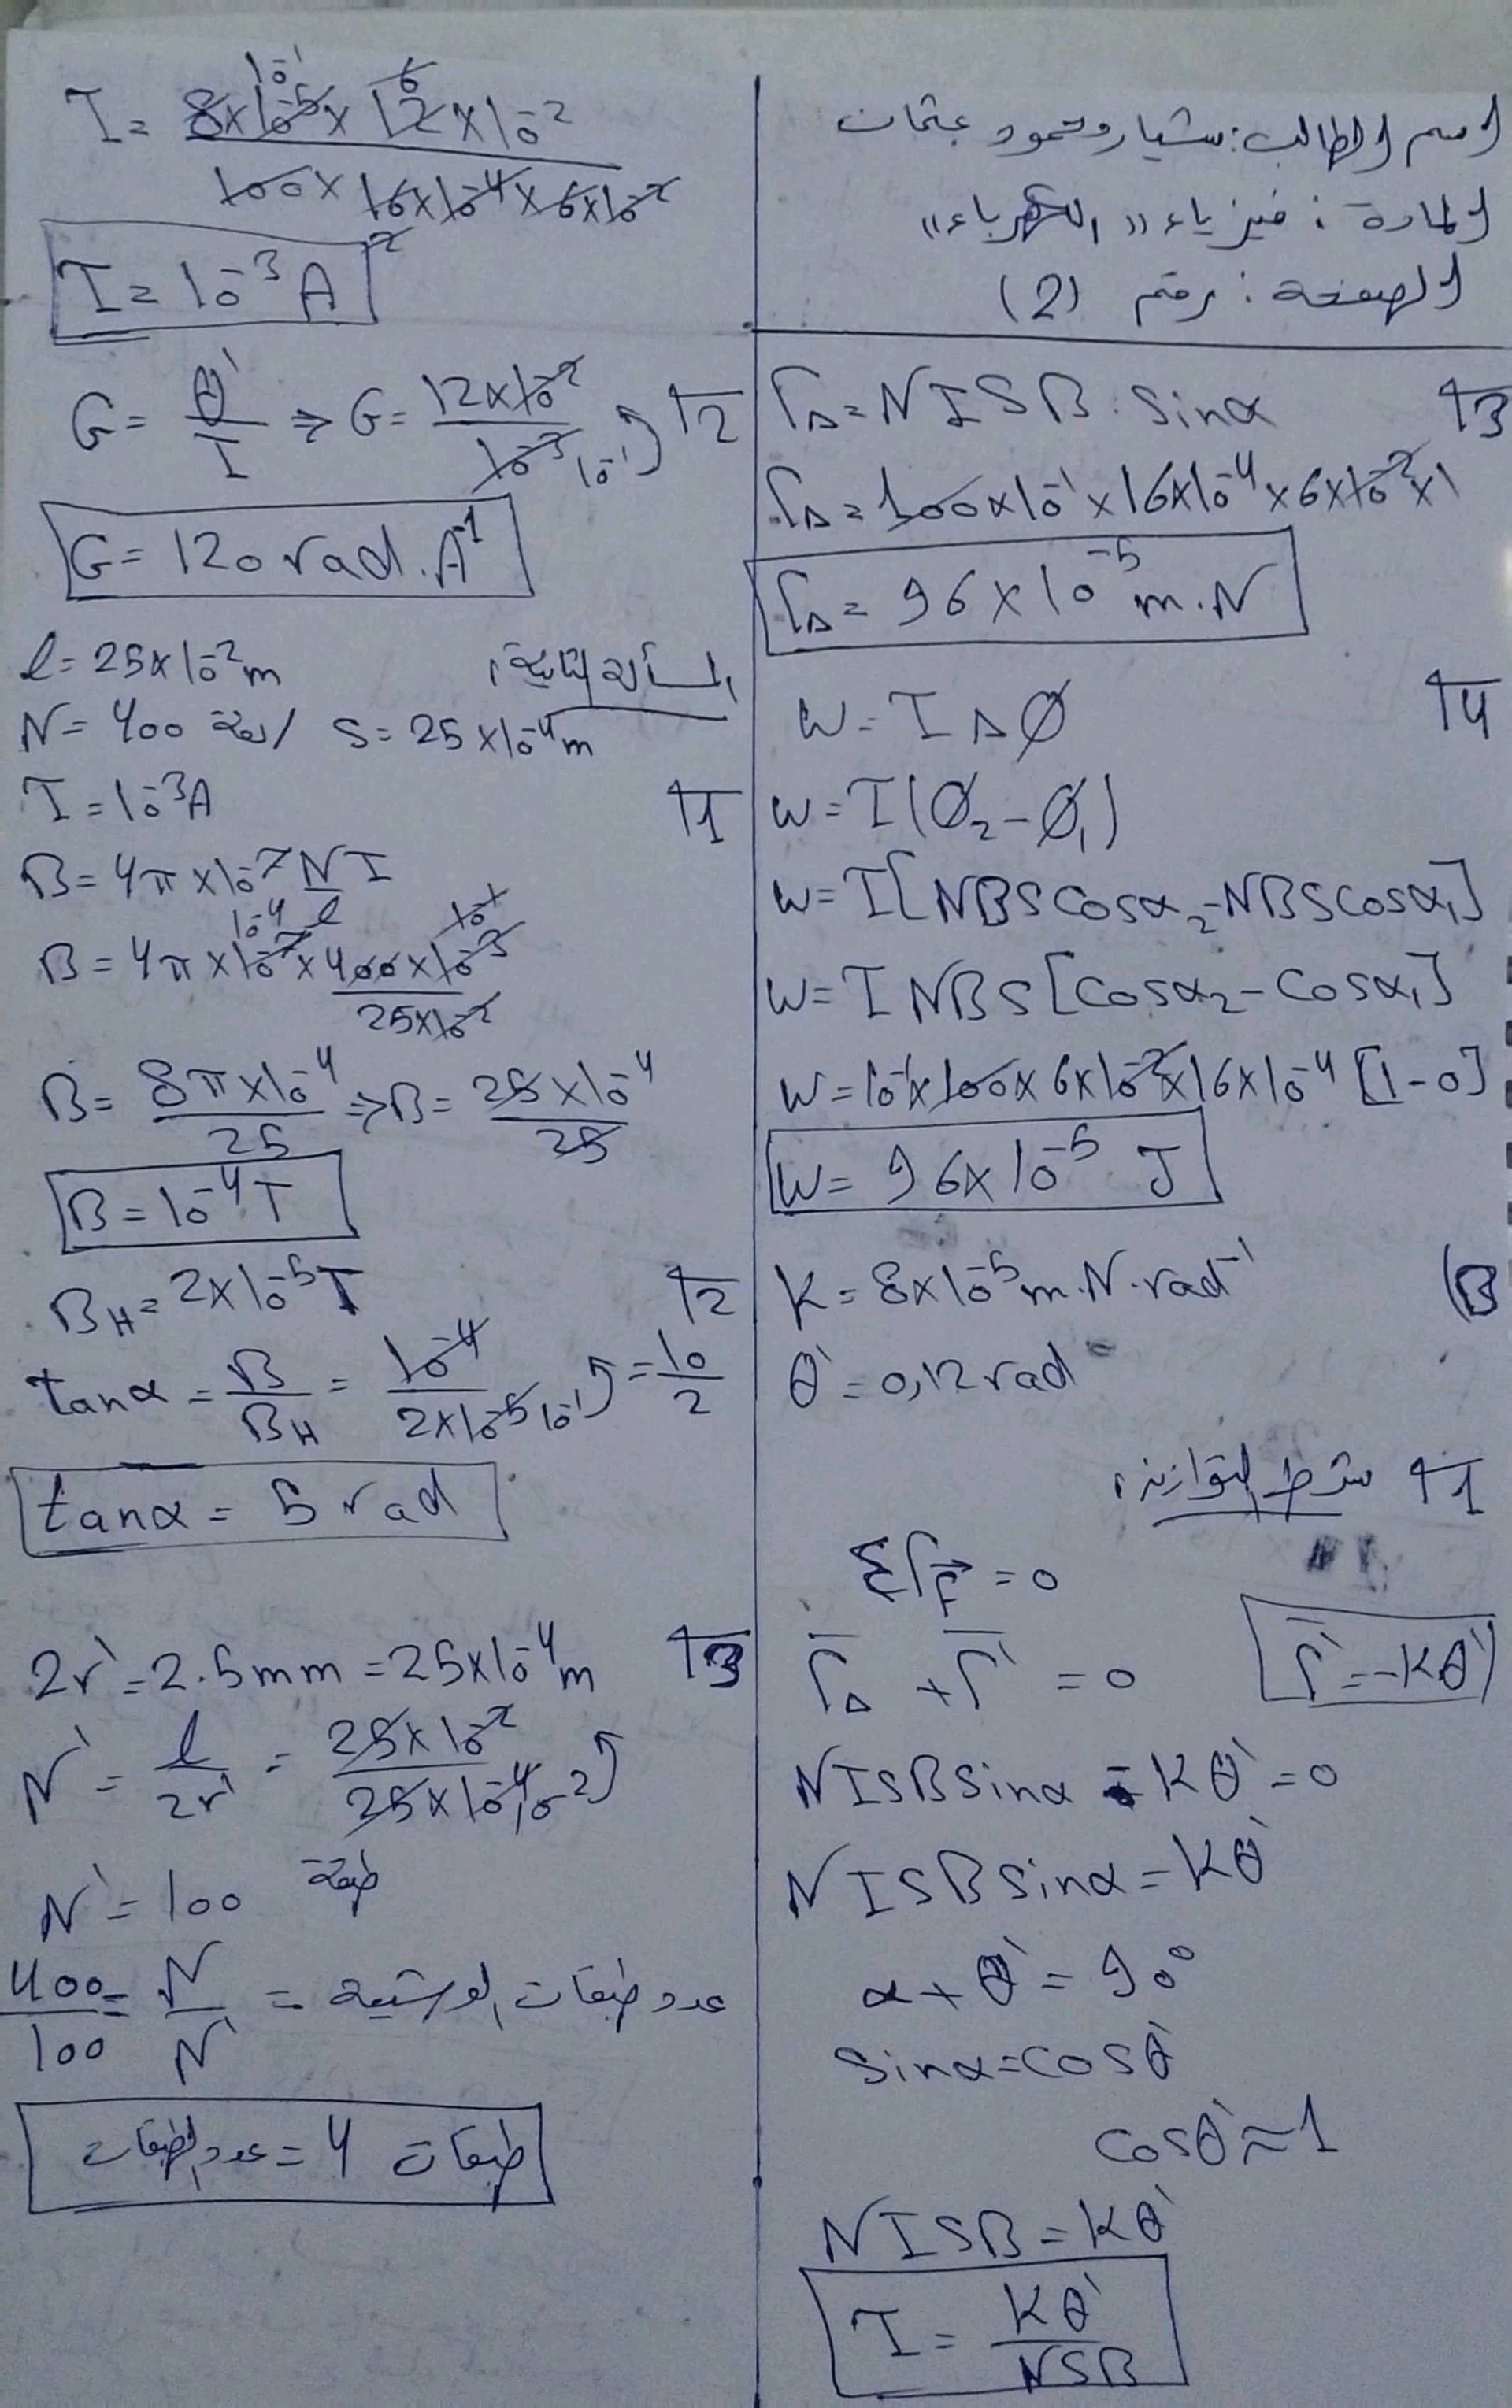 اسم الطالب: شيار محمود عثمان
المادة: فيزياء "الكهرباء"
الصفحة: رقم (2)
3 Γ_Δ = N I S B . sinα
Γ_Δ = 100 × 10⁻¹ × 16×10⁻⁴ × 6×10⁻² × 1
Γ_Δ = 96 × 10⁻⁵ m.N
4 W = I Δ Ø
W = I (Ø₂ - Ø₁)
W = I [NBS cosα₂ - NBS cosα₁]
W = I NBS [cosα₂ - cosα₁]
W = 10⁻¹ × 100 × 6×10⁻² × 16×10⁻⁴ [1-0]
W = 96 × 10⁻⁵ J
(B K = 8×10⁻⁵ m.N.rad⁻¹
θ' = 0,12 rad
1 شرط التوازن:
ΣΓ_F = 0
Γ_Δ + Γ' = 0 Γ' = -Kθ'
N I S B sinα - Kθ' = 0
N I S B sinα = Kθ'
α + θ' = 90°
sinα = cosθ'
cosθ' ≈ 1
N I S B = Kθ'
I = Kθ' / NSB
I = 8×10⁻⁵ × 12×10⁻² / 100 × 16×10⁻⁴ × 6×10⁻²
I = 10⁻³ A
2 G = θ' / I ⇒ G = 12×10⁻² / 10⁻³
G = 120 rad.A⁻¹
المسألة الثانية:
l = 25×10⁻² m
N = 400 لفة / S = 25×10⁻⁴ m
1 I = 10⁻³ A
B = 4π × 10⁻⁷ N I / l
B = 4π × 10⁻⁷ × 400 × 10⁻³ / 25×10⁻²
B = 8π×10⁻⁴ / 25 ⇒ B = 25×10⁻⁴ / 25
B = 10⁻⁴ T
2 B_H = 2×10⁻⁵ T
tanα = B / B_H = 10⁻⁴ / 2×10⁻⁵ = 10 / 2
tanα = 5 rad
3 2r' = 2.5 mm = 25×10⁻⁴ m
N' = l / 2r' = 25×10⁻² / 25×10⁻⁴
N' = 100 طبقة
عدد طبقات الوشيعة = N / N' = 400 / 100
عدد الطبقات = 4 طبقات